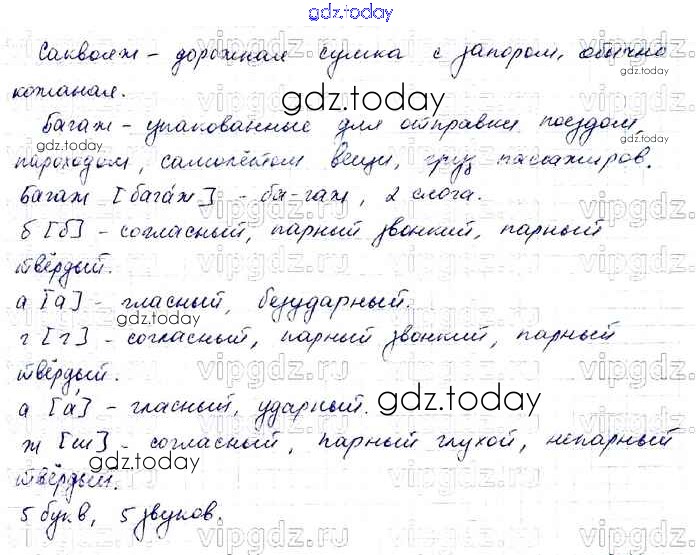 gdz.today
Саквояж - дорожная сумка с запором, обычно
кожаная.
Багаж - упакованные для отправки поездом,
пароходом, самолётом вещи, груз пассажиров.
Багаж [бага́ж] - ба-гаж, 2 слога.
б [б] - согласный, парный звонкий, парный
твёрдый.
а [а] - гласный, безударный.
г [г] - согласный, парный звонкий, парный
твёрдый.
а [а́] - гласный, ударный.
ж [ш] - согласный, парный глухой, непарный
твёрдый.
5 букв, 5 звуков.